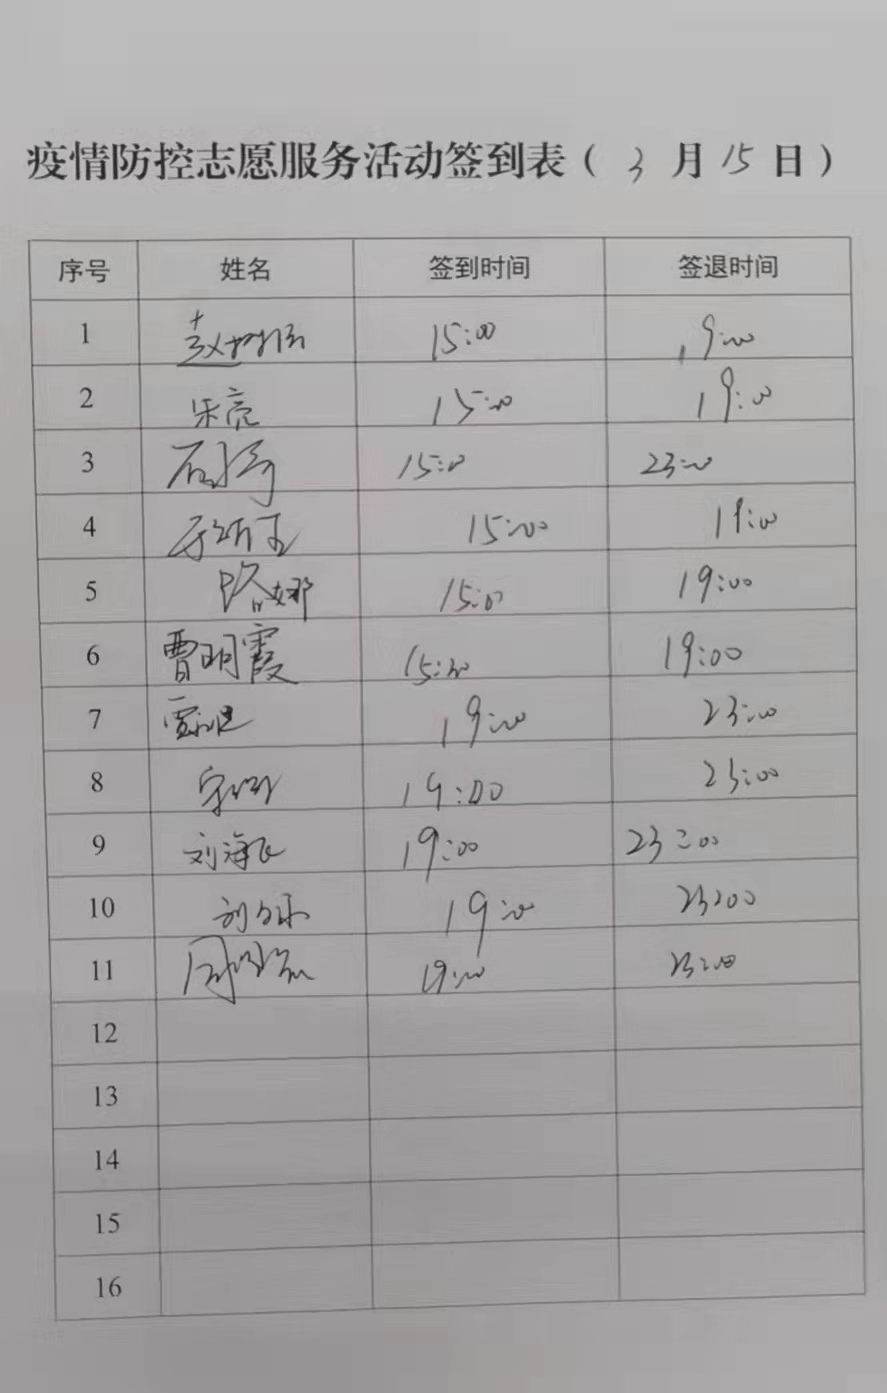 疫情防控志愿服务活动签到表（3月15日）
序号 姓名 签到时间 签退时间
1 15:00 19:00
2 宋亮 15:00 19:00
3 15:00 23:00
4 15:00 19:00
5 路娜 15:00 19:00
6 曹明霞 15:00 19:00
7 19:00 23:00
8 19:00 23:00
9 刘海飞 19:00 23:00
10 19:00 23:00
11 19:00 23:00
12
13
14
15
16